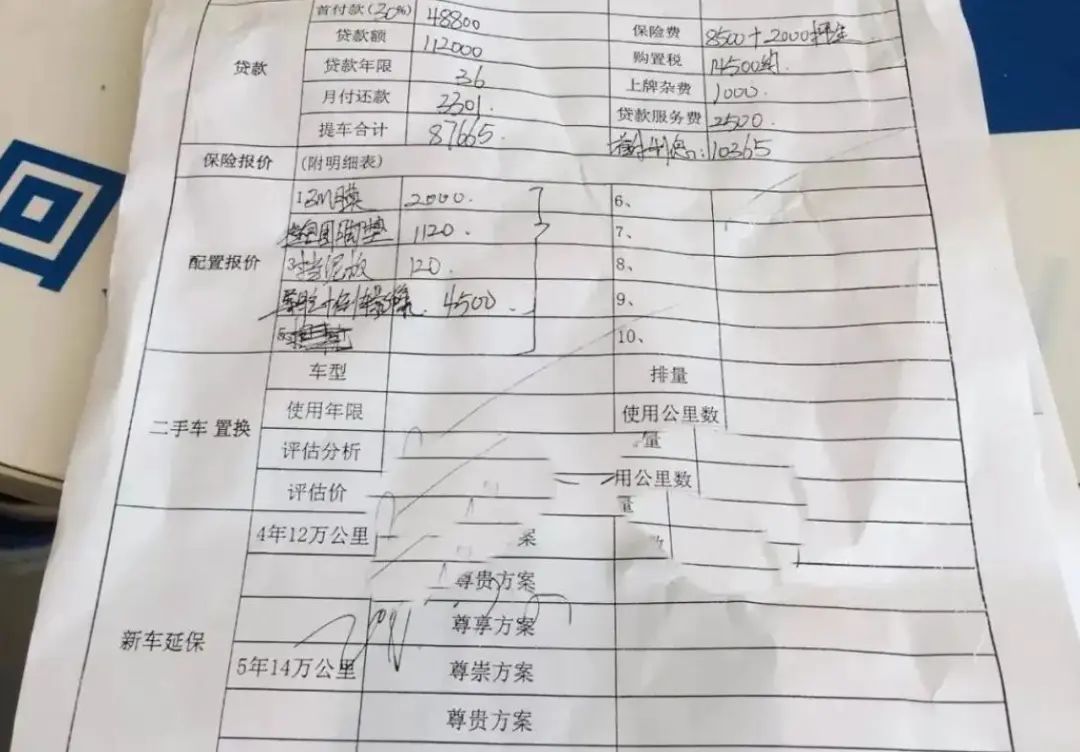 首付款(30%) 48800 保险费 8500+2000押金
贷款 贷款额 112000 购置税 14500约.
贷款年限 36 上牌杂费 1000.
月付还款 3301. 贷款服务费 2500.
提车合计 87665. :10365
保险报价 (附明细表)
配置报价
1 3M膜 2000. 6、
脚垫 1120. 7、
3挡泥板 120. 8、
4500. 9、
5 10、
二手车 置换
车型 排量
使用年限 使用公里数
评估分析 量
评估价 用公里数
量
新车延保
4年12万公里
尊贵方案
尊享方案
5年14万公里 尊崇方案
尊贵方案